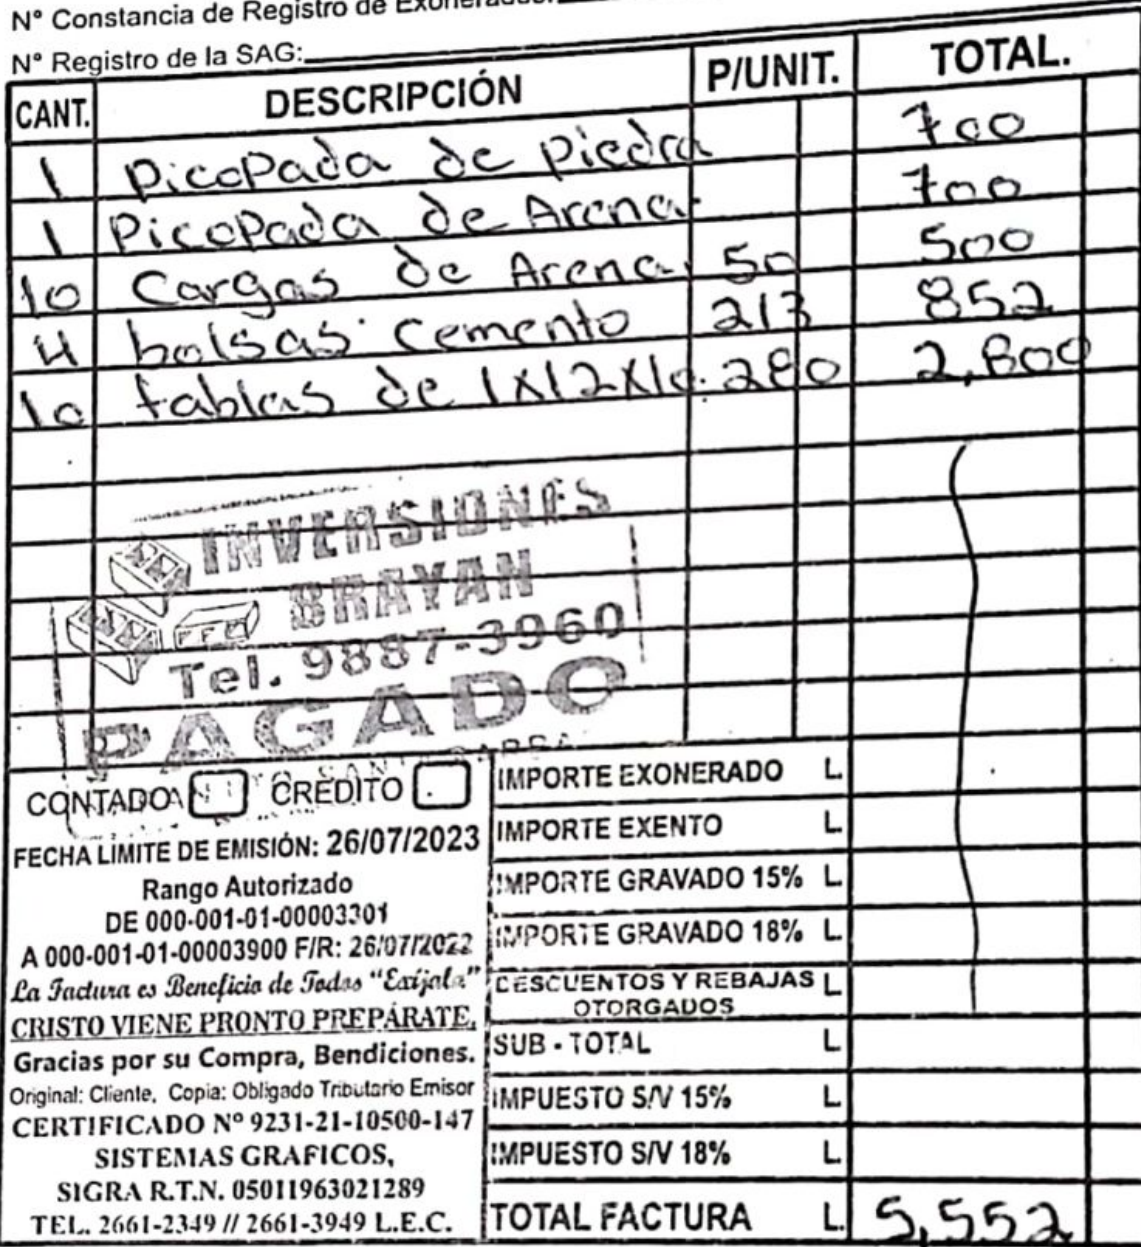 N° Constancia de Registro de Exonerados:
N° Registro de la SAG:
CANT. DESCRIPCIÓN P/UNIT. TOTAL.
1 Picopada de piedra 700
1 Picopada de Arena. 700
10 Cargas de Arena 50 500
4 bolsas cemento 213 852
10 tablas de 1x12x10. 280 2,800
INVERSIONES
BRAYAN
Tel. 9887-3960
PAGADO
CONTADO CRÉDITO
FECHA LÍMITE DE EMISIÓN: 26/07/2023
Rango Autorizado
DE 000-001-01-00003301
A 000-001-01-00003900 F/R: 26/07/2022
La Factura es Beneficio de Todos "Exíjala"
CRISTO VIENE PRONTO PREPÁRATE,
Gracias por su Compra, Bendiciones.
Original: Cliente, Copia: Obligado Tributario Emisor
CERTIFICADO Nº 9231-21-10500-147
SISTEMAS GRAFICOS,
SIGRA R.T.N. 05011963021289
TEL. 2661-2349 // 2661-3949 L.E.C.
IMPORTE EXONERADO L.
IMPORTE EXENTO L.
IMPORTE GRAVADO 15% L.
IMPORTE GRAVADO 18% L.
DESCUENTOS Y REBAJAS L
OTORGADOS
SUB - TOTAL L
IMPUESTO S/V 15% L
IMPUESTO S/V 18% L
TOTAL FACTURA L. 5,552